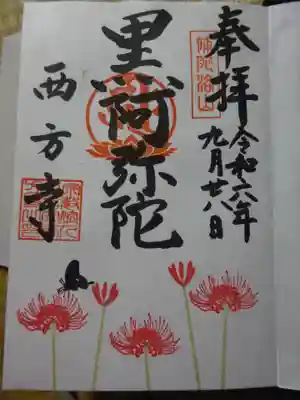 奉拝
令和六年
九月廿八日
黒阿弥陀
西方寺